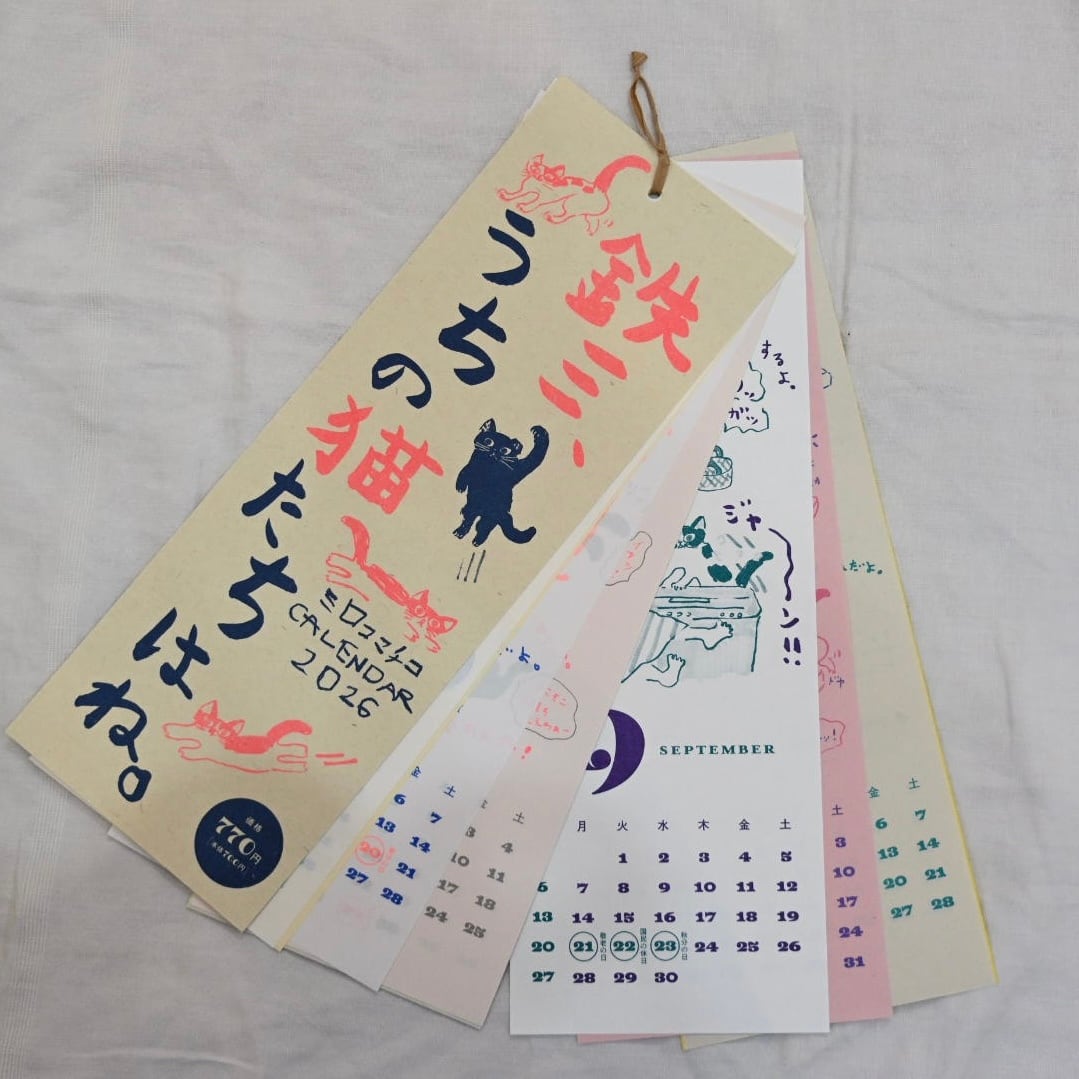 鉄三、
うちの猫
たちはね。
ミロコマチコ
CALENDAR
2026
価格
770円
(本体700円)
するよ。
ガッ
ジャーン!!
んだよ。
9
SEPTEMBER
月 火 水 木 金 土
1 2 3 4 5
6 7 8 9 10 11 12
13 14 15 16 17 18 19
20 21 敬老の日 22 国民の休日 23 秋分の日 24 25 26
27 28 29 30
金 土
6 7
13 14
20 21
27 28
土
3 4
10 11
17 18
24 25
土
3
10
17
24
31
金 土
6 7
13 14
20 21
27 28